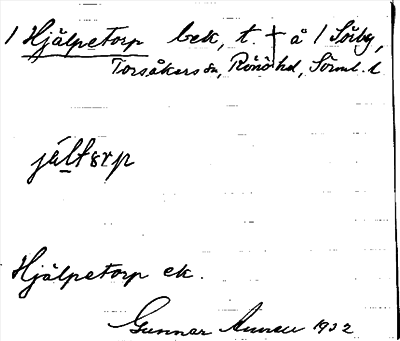 1 Hjälpetorp bek, t. † å 1 Sörby,
Torsåkers sn, Rönö hd, Sörml. l.
jáltərp
Hjälpetorp ek.
Gunnar 1932